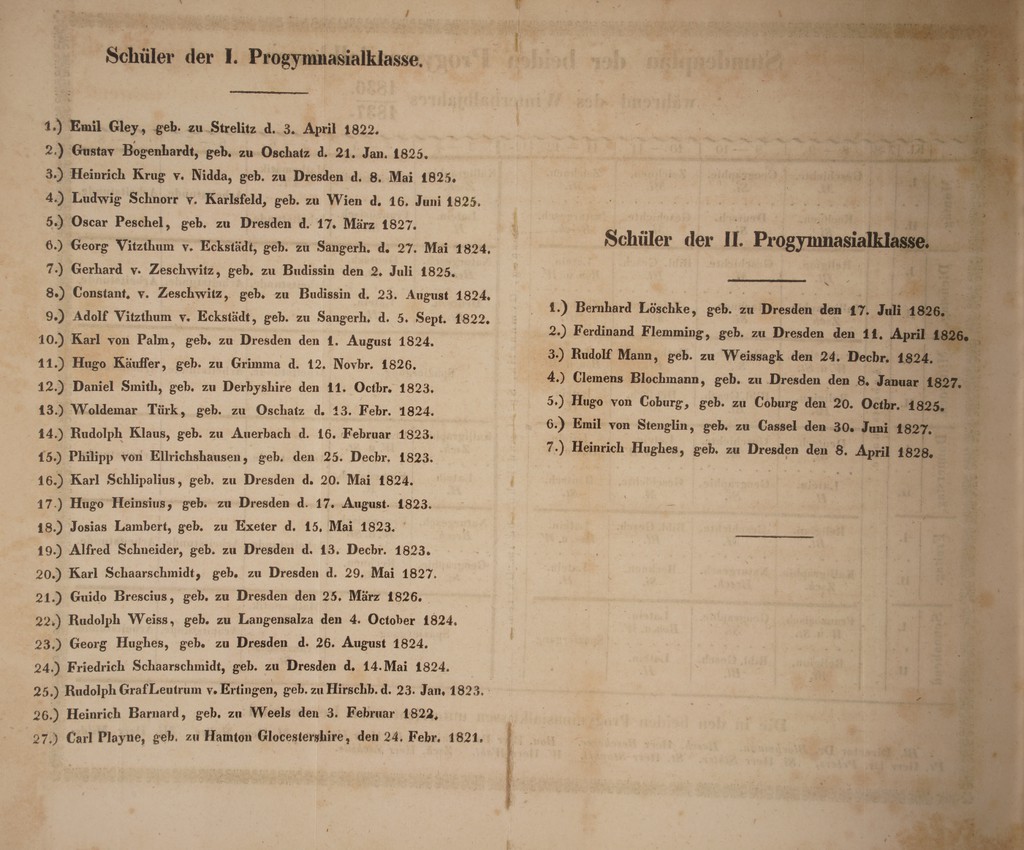 Schüler der I. Progymnasialklasse.
1.) Emil Gley, geb. zu Strelitz d. 3. April 1822.
2.) Gustav Bogenhardt, geb. zu Oschatz d. 21. Jan. 1825.
3.) Heinrich Krug v. Nidda, geb. zu Dresden d. 8. Mai 1825.
4.) Ludwig Schnorr v. Karlsfeld, geb. zu Wien d. 16. Juni 1825.
5.) Oscar Peschel, geb. zu Dresden d. 17. März 1827.
6.) Georg Vitzthum v. Eckstädt, geb. zu Sangerh. d. 27. Mai 1824.
7.) Gerhard v. Zeschwitz, geb. zu Budissin den 2. Juli 1825.
8.) Constant. v. Zeschwitz, geb. zu Budissin d. 23. August 1824.
9.) Adolf Vitzthum v. Eckstädt, geb. zu Sangerh. d. 5. Sept. 1822.
10.) Karl von Palm, geb. zu Dresden den 1. August 1824.
11.) Hugo Käuffer, geb. zu Grimma d. 12. Novbr. 1826.
12.) Daniel Smith, geb. zu Derbyshire den 11. Octbr. 1823.
13.) Woldemar Türk, geb. zu Oschatz d. 13. Febr. 1824.
14.) Rudolph Klaus, geb. zu Auerbach d. 16. Februar 1823.
15.) Philipp von Ellrichshausen, geb. den 25. Decbr. 1823.
16.) Karl Schlipalius, geb. zu Dresden d. 20. Mai 1824.
17.) Hugo Heinsius, geb. zu Dresden d. 17. August. 1823.
18.) Josias Lambert, geb. zu Exeter d. 15. Mai 1823.
19.) Alfred Schneider, geb. zu Dresden d. 13. Decbr. 1823.
20.) Karl Schaarschmidt, geb. zu Dresden d. 29. Mai 1827.
21.) Guido Brescius, geb. zu Dresden den 25. März 1826.
22.) Rudolph Weiss, geb. zu Langensalza den 4. October 1824.
23.) Georg Hughes, geb. zu Dresden d. 26. August 1824.
24.) Friedrich Schaarschmidt, geb. zu Dresden d. 14. Mai 1824.
25.) Rudolph Graf Leutrum v. Ertingen, geb. zu Hirschb. d. 23. Jan. 1823.
26.) Heinrich Barnard, geb. zu Weels den 3. Februar 1822.
27.) Carl Playne, geb. zu Hamton Glocestershire, den 24. Febr. 1821.
Schüler der II. Progymnasialklasse.
1.) Bernhard Löschke, geb. zu Dresden den 17. Juli 1826.
2.) Ferdinand Flemming, geb. zu Dresden den 11. April 1826.
3.) Rudolf Mann, geb. zu Weissagk den 24. Decbr. 1824.
4.) Clemens Blochmann, geb. zu Dresden den 8. Januar 1827.
5.) Hugo von Coburg, geb. zu Coburg den 20. Octbr. 1825.
6.) Emil von Stenglin, geb. zu Cassel den 30. Juni 1827.
7.) Heinrich Hughes, geb. zu Dresden den 8. April 1828.